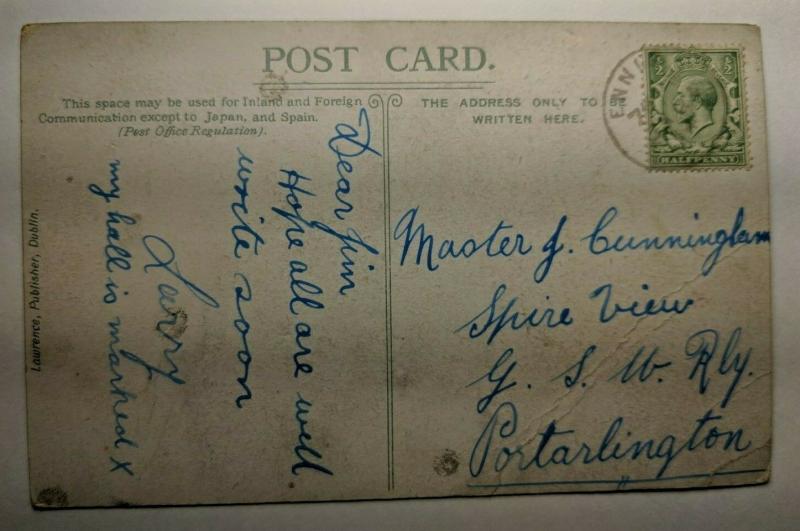 POST CARD.
This space may be used for Inland and Foreign
Communication except to Japan, and Spain.
(Post Office Regulation).
THE ADDRESS ONLY TO BE
WRITTEN HERE.
ENNI
HALFPENNY
Dear Jim
Hope all are well
write soon
Larry
my hall is marked X
Master J. Cunningham
Spire View
G. S. W. Rly.
Portarlington
Lawrence, Publisher, Dublin.